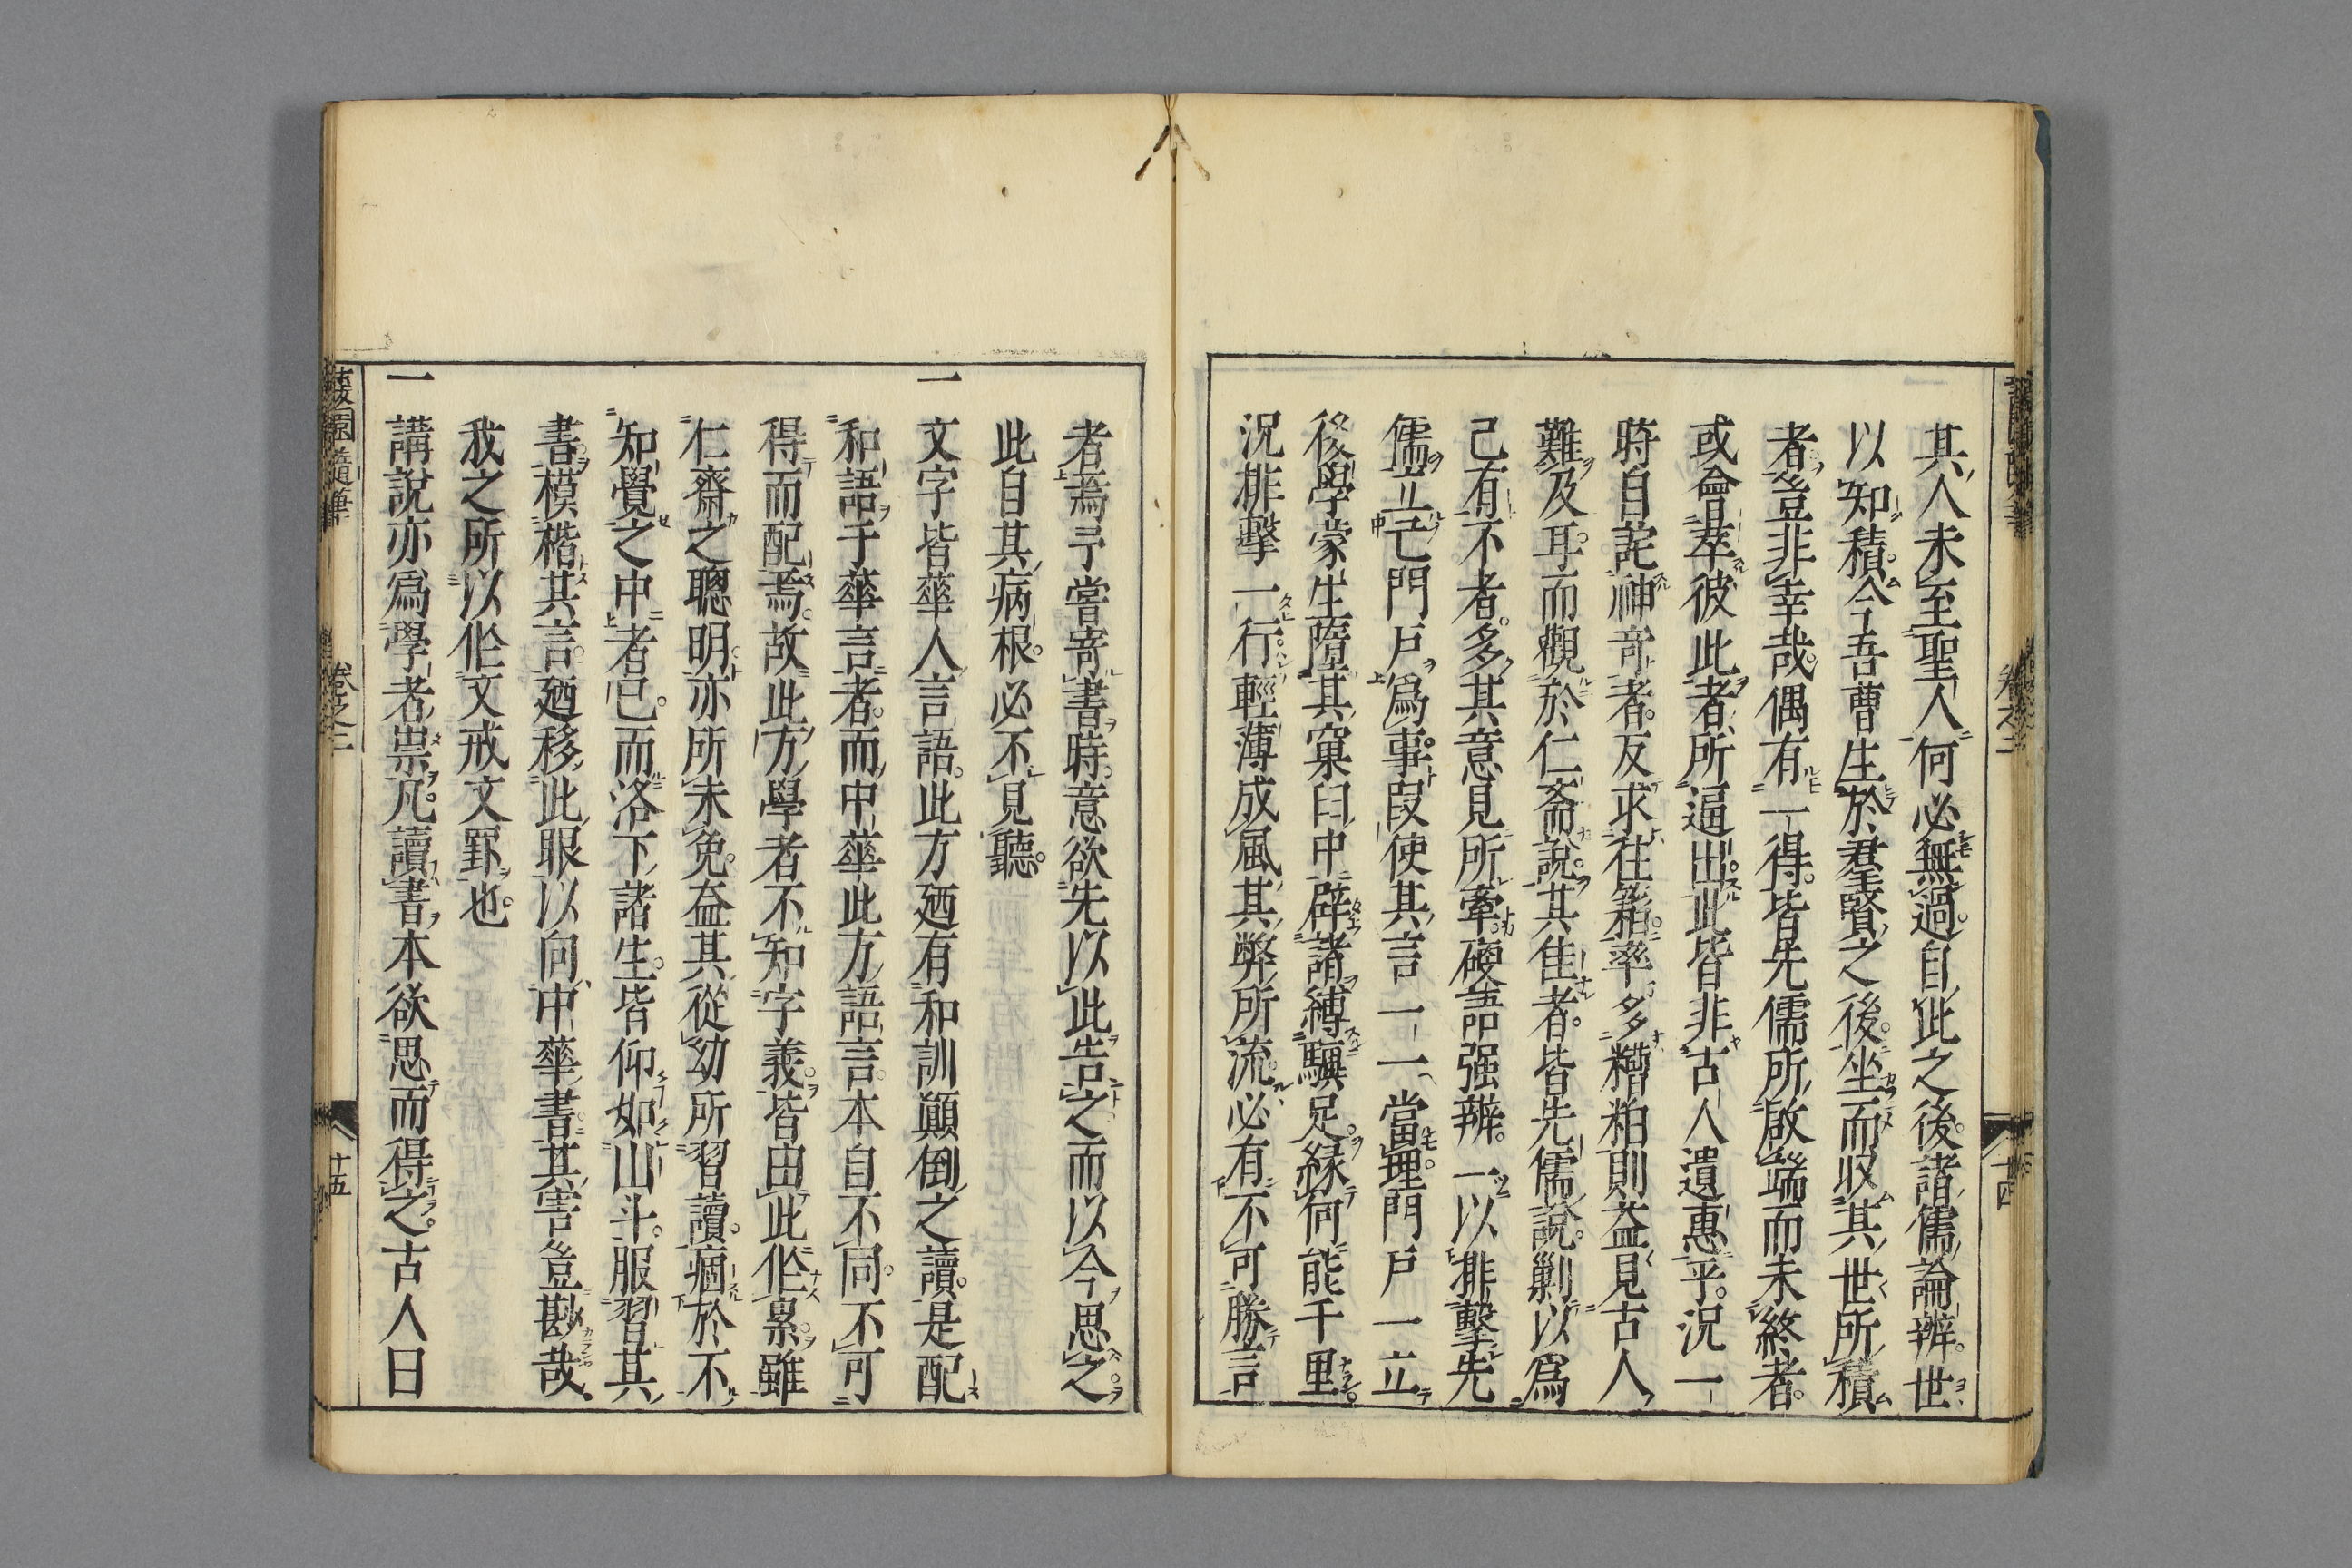 其人未至聖人何必無過自此之後諸儒論辨世
以知積今吾曹生於羣賢之後坐而收其世所積
者豈非幸哉偶有一得皆先儒所啟端而未終者
或會萃彼此者所逼出此皆非古人遺惠乎況一
時自詫神奇者反求往籍率多糟粕則益見古人
難及耳而觀於仁斎說其佳者皆先儒說剿以爲
己有不者多其意見所牽硬語强辨一以排擊先
儒立己門戶爲事叚使其言一一當理門戶一立
後學蒙生墮其窠臼中辟諸縛驥足緣何能千里
況排擊一行輕薄成風其弊所流必有不可勝言
者焉予嘗寄書時意欲先以此告之而以今思之
此自其病根必不見聽
一文字皆華人言語此方廼有和訓顚倒之讀是配
和語于華言者而中華此方語言本自不同不可
得而配焉故此方學者不知字義皆由此作累雖
仁齋之聰明亦所未免益其從幼所習讀痼於不
知覺之中者已而洛下諸生皆仰如山斗服習其
書模楷其言廼移此眼以向中華書其害豈尠哉
我之所以作文戒文罪也
一講說亦爲學者祟凡讀書本欲思而得之古人曰
蘐園隨筆
卷之二
十五
卷之二
十四